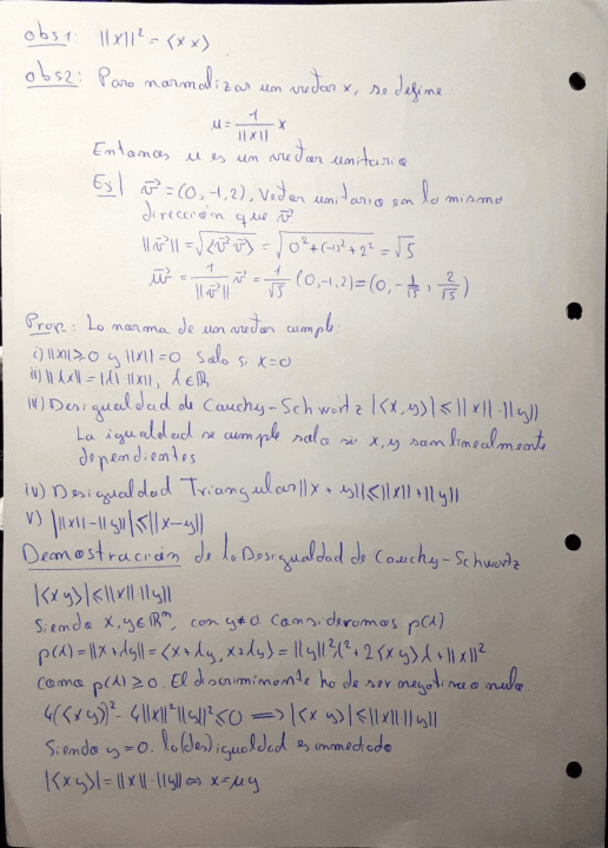 obs1: ||x||² = <x x>
obs2: Para normalizar un vector x, se define
u = 1/||x|| x
Entonces u es un vector unitario
Ej| v⃗ = (0, -1, 2), Vector unitario en la misma
dirección que v⃗.
||v⃗|| = √<v⃗ v⃗> = √0² + (-1)² + 2² = √5
w⃗ = 1/||v⃗|| v⃗ = 1/√5 (0, -1, 2) = (0, -1/√5, 2/√5)
Prop.: La norma de un vector cumple:
i) ||x|| ≥ 0 y ||x|| = 0 solo si x = 0
ii) ||λx|| = |λ| ||x||, λ ∈ ℝ
iii) Desigualdad de Cauchy-Schwartz |<x, y>| ≤ ||x|| · ||y||
La igualdad se cumple solo si x, y son linealmente
dependientes
iv) Desigualdad Triangular ||x + y|| ≤ ||x|| + ||y||
v) |||x|| - ||y||| ≤ ||x - y||
Demostración de la Desigualdad de Cauchy-Schwartz
|<x y>| ≤ ||x|| · ||y||
Siendo x, y ∈ ℝⁿ, con y ≠ 0. Consideramos p(λ)
p(λ) = ||x + λy|| = <x + λy, x + λy> = ||y||² λ² + 2<x y>λ + ||x||²
como p(λ) ≥ 0. El discriminante ha de ser negativo o nulo.
4(<x y>)² - 4||x||² ||y||² ≤ 0 ⟹ |<x y>| ≤ ||x|| ||y||
Siendo y = 0. la (des)igualdad es inmediata
|<x y>| = ||x|| · ||y|| ⇔ x = μy